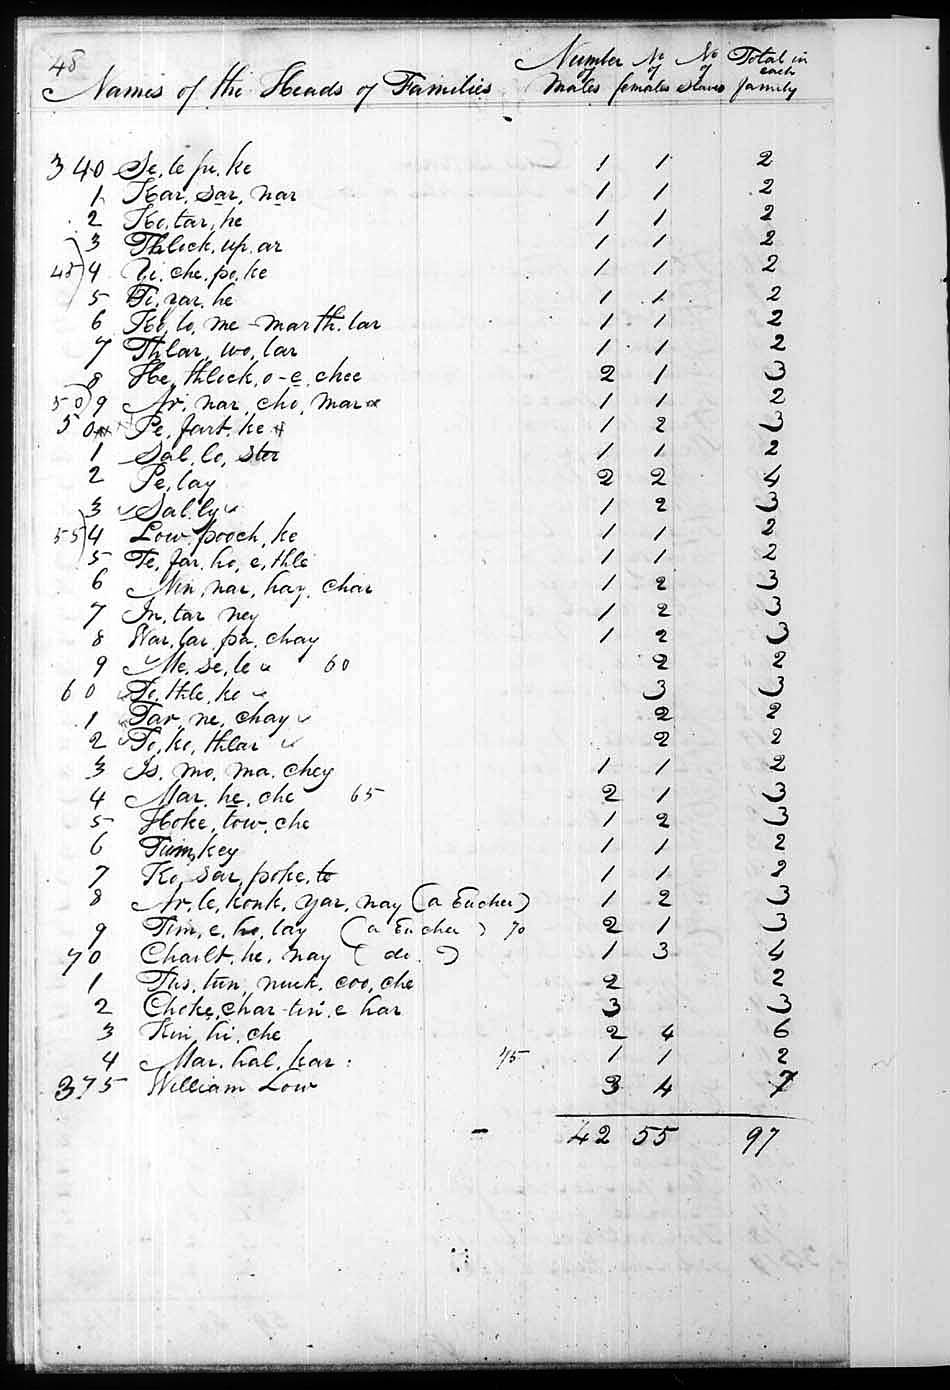 48
Names of the Heads of Families Number of Males No of females No of Slaves Total in each family
340 Se, le pu, ke 1 1 2
1 Kar, sar, nar 1 1 2
2 Ko, tar, he 1 1 2
3 Thlock, up, ar 1 1 2
45) 4 Yi, che, po, ke 1 1 2
5 Ti, yar, he 1 1 2
6 Ko, lo, me - marth, lar 1 1 2
7 Thlar, wo, lar 1 1 2
8 He, thlock, o-e, chee 2 1 3
50) 9 Ar, nar, cho, mar 1 1 2
50 Pe, fart, ke 1 2 3
1 Sal, lo, 1 1 2
2 Pe, lay 2 2 4
3 Sal, ly 1 2 3
55) 4 Low, pooch, ke 1 1 2
5 Te, far, ho, e, thle 1 1 2
6 Nin, nar, hay, char 1 2 3
7 In, tar ney 1 2 3
8 War, lar, pa, chay 1 2 3
9 Me, se, le 60 2 2
60 To, thle, ke 3 3
1 Tar, ne, chay 2 2
2 To, ko, thlar 2 2
3 Is, mo, ma, chey 1 1 2
4 Mar, he, che 65 2 1 3
5 Hoke, tow, che 1 2 3
6 Tum, key 1 1 2
7 Ko, sar, poke, te 1 1 2
8 Ar, le, konk, yar, nay (a Euchee) 1 2 3
9 Tim, e, ho, lay (a Euchee) 70 2 1 3
70 Chailt, he, nay (do.) 1 3 4
1 Tus, tun, nuck, coo, che 2 2
2 Choke, char-tin, e har 3 3
3 Kin, hi, che 2 4 6
4 Mar, hal, kar 75 1 1 2
375 William Low 3 4 7
42 55 97